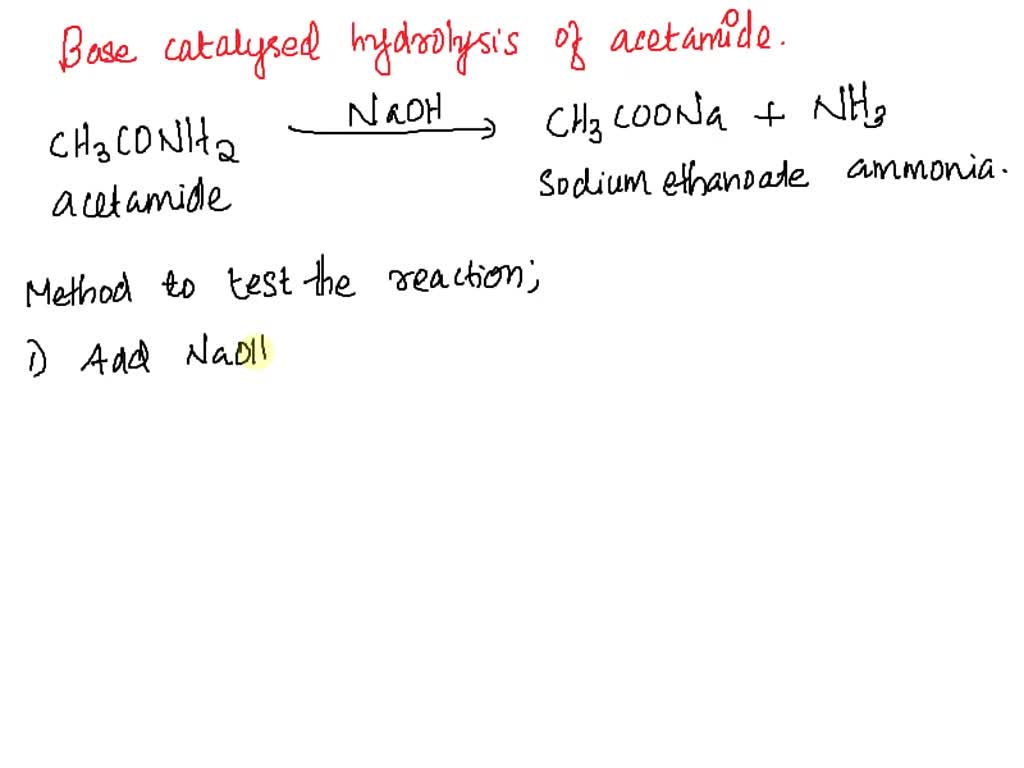 Base catalysed hydrolysis of acetamide.
CH3CONH2 NaOH CH3COONa + NH3
acetamide sodium ethanoate ammonia.
Method to test the reaction;
1) Add NaOH